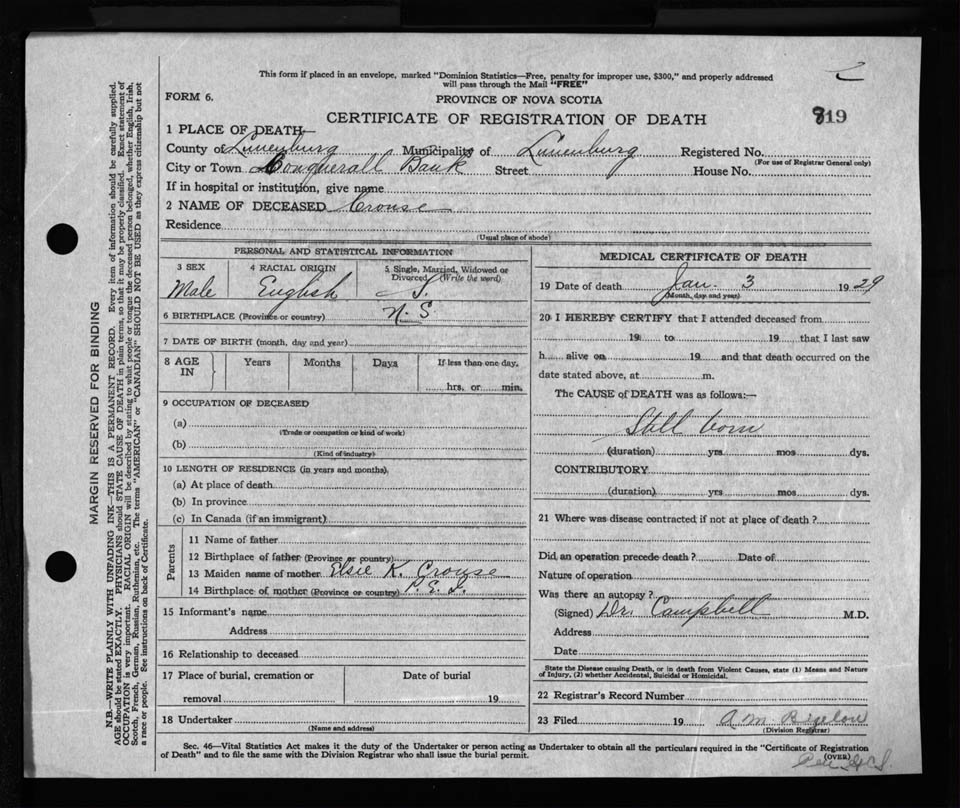 This form if placed in an envelope, marked "Dominion Statistics—Free, penalty for improper use, $300," and properly addressed
will pass through the Mail "FREE"
FORM 6.
PROVINCE OF NOVA SCOTIA
CERTIFICATE OF REGISTRATION OF DEATH
819
1 PLACE OF DEATH—
County of Lunenburg Municipality of Lunenburg Registered No.
(For use of Registrar General only)
City or Town Conquerall Bank Street House No.
If in hospital or institution, give name
2 NAME OF DECEASED Crouse
Residence
(Usual place of abode)
PERSONAL AND STATISTICAL INFORMATION
3 SEX 4 RACIAL ORIGIN 5 Single, Married, Widowed or
Divorced (Write the word)
Male English S.
6 BIRTHPLACE (Province or country) N. S
7 DATE OF BIRTH (month, day and year)
8 AGE IN Years Months Days If less than one day,
hrs. or min.
9 OCCUPATION OF DECEASED
(a)
(Trade or occupation or kind of work)
(b)
(Kind of industry)
10 LENGTH OF RESIDENCE (in years and months)
(a) At place of death
(b) In province
(c) In Canada (if an immigrant)
Parents
11 Name of father
12 Birthplace of father (Province or country)
13 Maiden name of mother Elsie K. Crouse
14 Birthplace of mother (Province or country) P. E. I.
15 Informant's name
Address
16 Relationship to deceased
17 Place of burial, cremation or Date of burial
removal 19
18 Undertaker
(Name and address)
MEDICAL CERTIFICATE OF DEATH
19 Date of death Jan. 3 1929
(Month, day and year)
20 I HEREBY CERTIFY that I attended deceased from
19 to 19 that I last saw
h alive on 19 and that death occurred on the
date stated above, at m.
The CAUSE of DEATH was as follows:—
Still born
(duration) yrs mos dys.
CONTRIBUTORY
(duration) yrs mos dys.
21 Where was disease contracted if not at place of death ?
Did an operation precede death ? Date of
Nature of operation
Was there an autopsy ?
(Signed) Dr. Campbell M.D.
Address
Date
State the Disease causing Death, or in death from Violent Causes, state (1) Means and Nature
of Injury, (2) whether Accidental, Suicidal or Homicidal.
22 Registrar's Record Number
23 Filed 19 A M Bigelow
(Division Registrar)
Sec. 46—Vital Statistics Act makes it the duty of the Undertaker or person acting as Undertaker to obtain all the particulars required in the "Certificate of Registration
of Death" and to file the same with the Division Registrar who shall issue the burial permit.
(OVER)
MARGIN RESERVED FOR BINDING
N.B.—WRITE PLAINLY WITH UNFADING INK—THIS IS A PERMANENT RECORD. Every item of information should be carefully supplied.
AGE should be stated EXACTLY. PHYSICIANS should STATE CAUSE OF DEATH in plain terms, so that it may be properly classified. Exact statement of
OCCUPATION is very important. RACIAL ORIGIN will be described by stating to what people or tongue the deceased person belonged, whether English, Irish,
Scotch, French, German, Russian, Ruthenian, etc. The terms "AMERICAN" or "CANADIAN" SHOULD NOT BE USED as they express citizenship but not
a race or people. See instructions on back of Certificate.